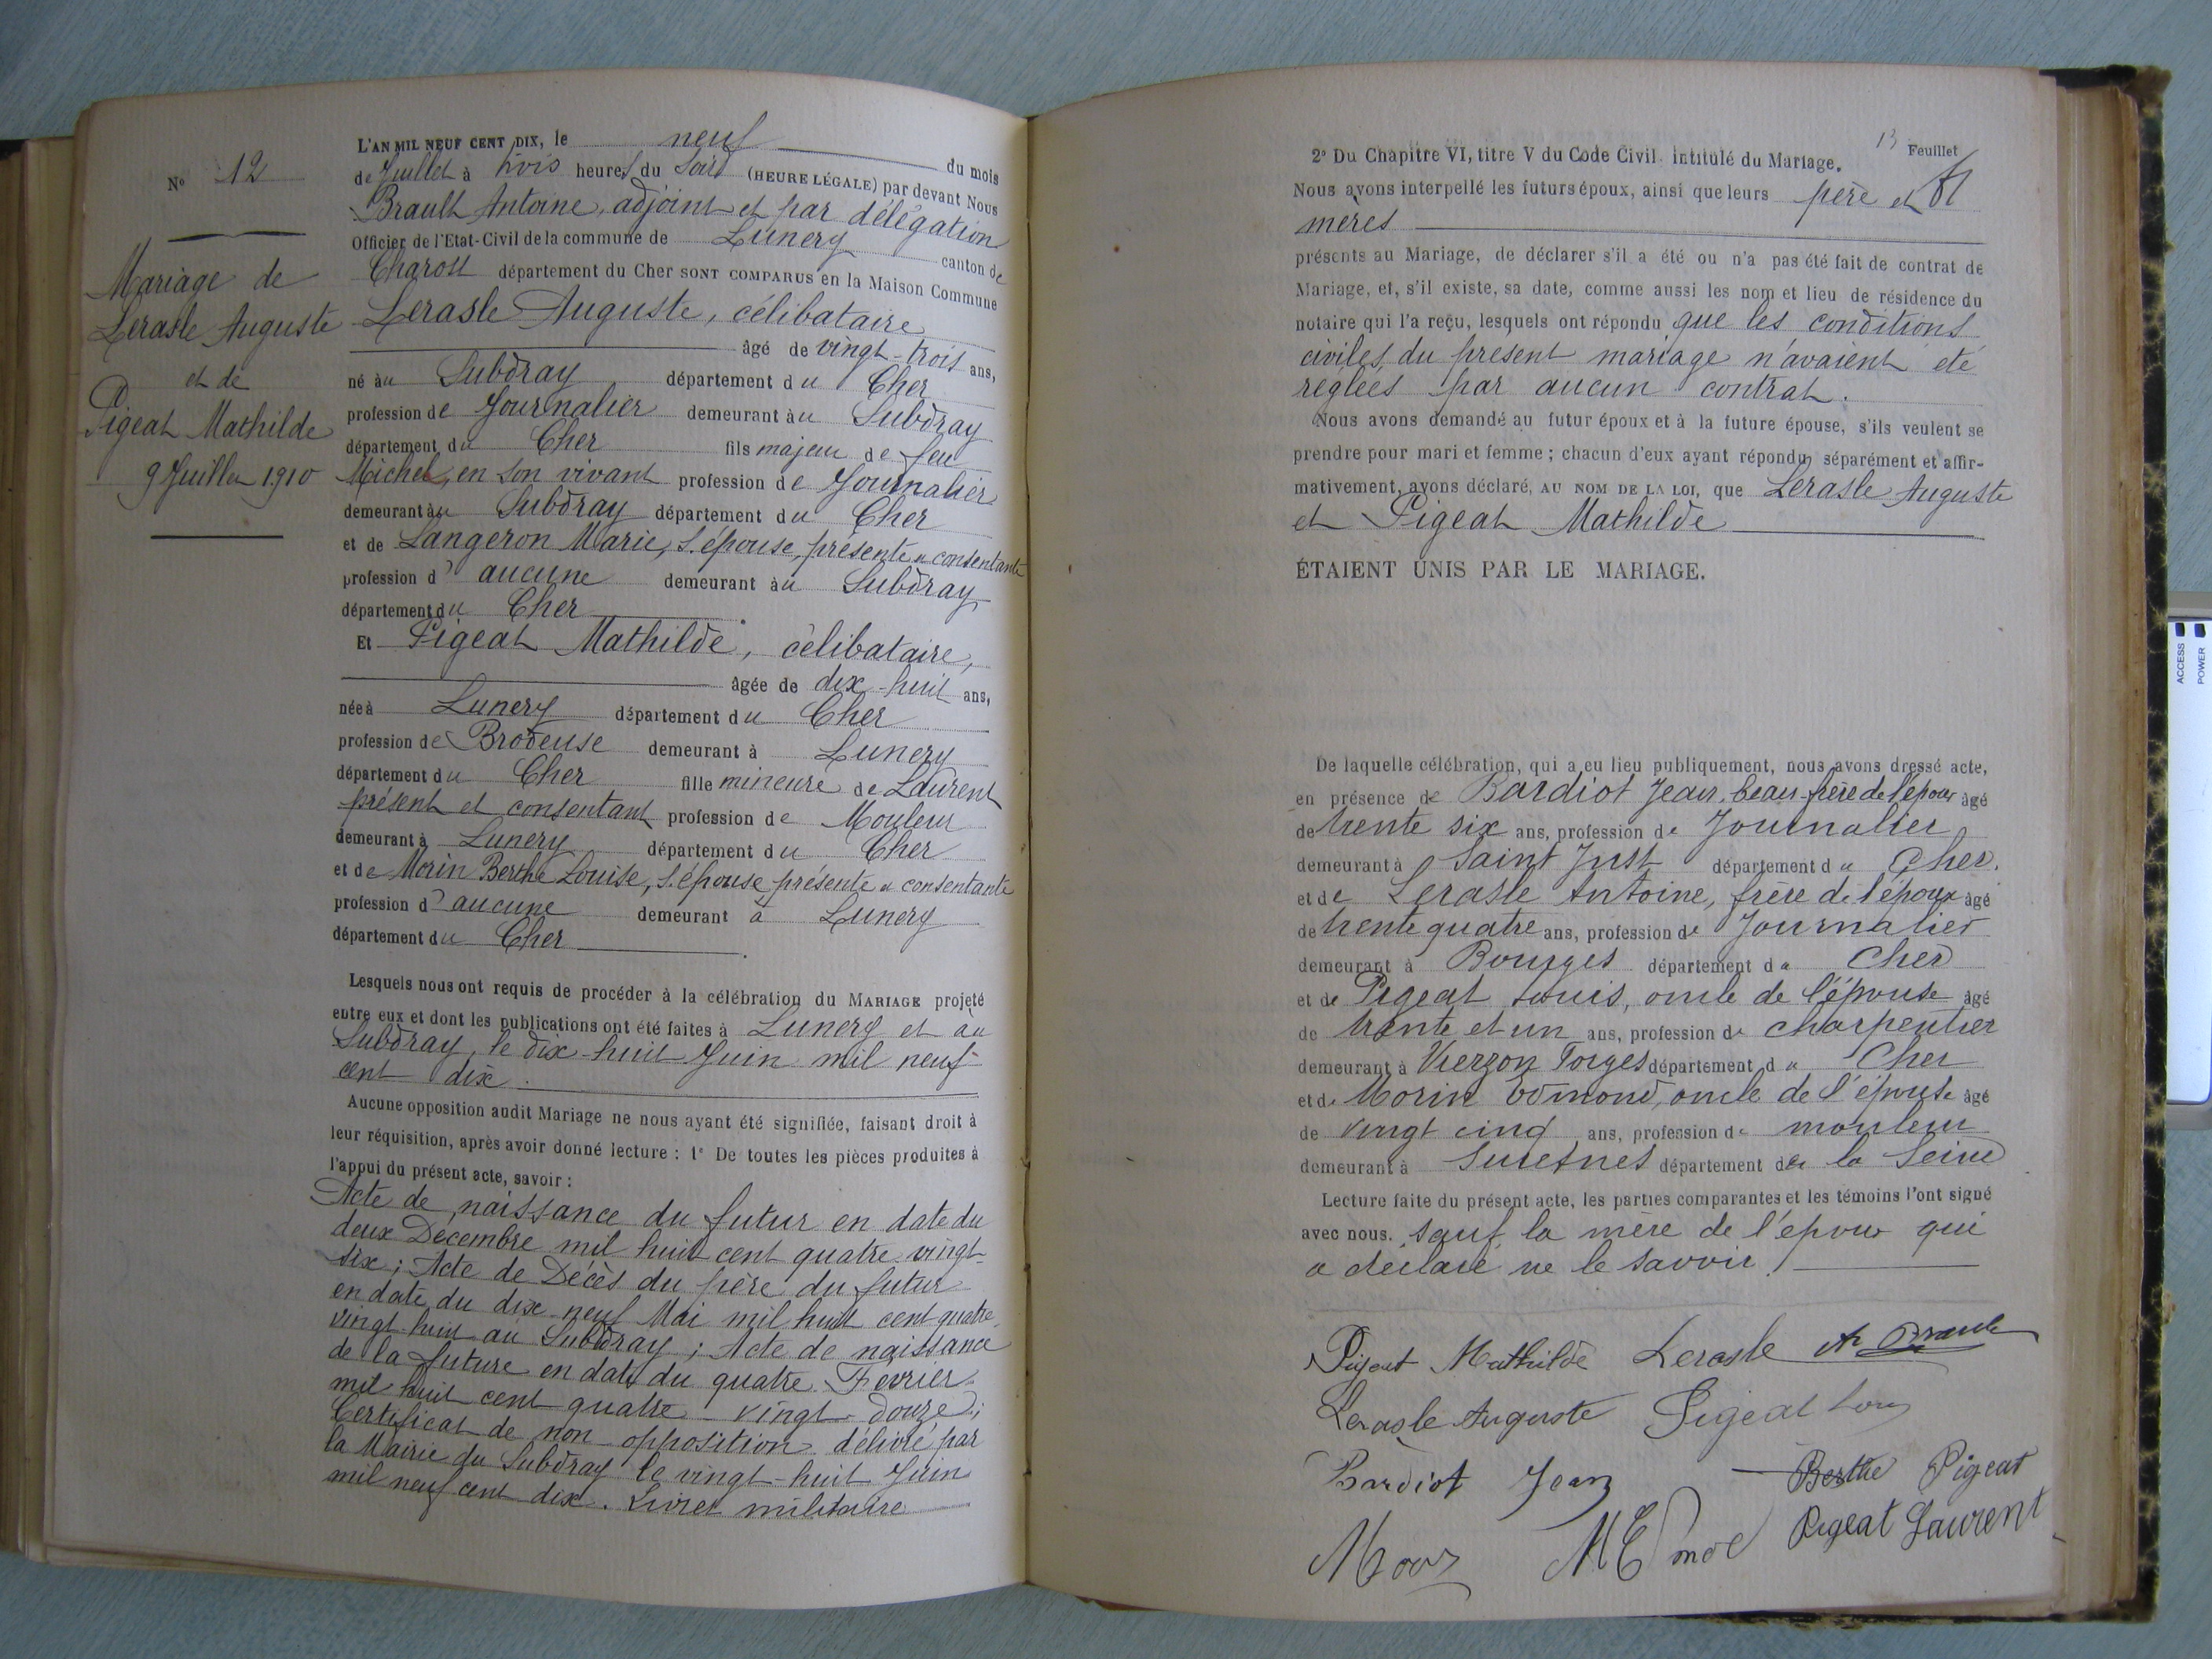 N° 12
Mariage de
Lerasle Auguste
et de
Pigeat Mathilde
9 Juillet 1910
L'AN MIL NEUF CENT DIX, le neuf du mois
de Juillet à trois heures du Soir (HEURE LÉGALE) par devant Nous
Brault Antoine, adjoint et par délégation
Officier de l'Etat-Civil de la commune de Lunery canton de
Charost département du Cher SONT COMPARUS en la Maison Commune
Lerasle Auguste, célibataire
âgé de vingt-trois ans,
né au Subdray département du Cher
profession de Journalier demeurant au Subdray
département du Cher fils majeur de feu
Michel, en son vivant profession de Journalier
demeurant au Subdray département du Cher
et de Langeron Marie, s. épouse, présente et consentante
profession d' aucune demeurant au Subdray
département du Cher
Et Pigeat Mathilde, célibataire,
âgée de dix-huit ans,
née à Lunery département du Cher
profession de Brodeuse demeurant à Lunery
département du Cher fille mineure de Laurent
présent et consentant profession de Mouleur
demeurant à Lunery département du Cher
et de Morin Berthe Louise, s. épouse présente et consentante
profession d' aucune demeurant à Lunery
département du Cher
Lesquels nous ont requis de procéder à la célébration du MARIAGE projeté
entre eux et dont les publications ont été faites à Lunery et au
Subdray, le dix-huit Juin mil neuf
cent dix.
Aucune opposition audit Mariage ne nous ayant été signifiée, faisant droit à
leur réquisition, après avoir donné lecture : 1° De toutes les pièces produites à
l'appui du présent acte, savoir :
Acte de naissance du futur en date du
deux Décembre mil huit cent quatre-vingt-
six ; Acte de Décès du père du futur
en date du dix-neuf Mai mil huit cent quatre-
vingt-huit au Subdray ; Acte de naissance
de la future en date du quatre Février
mil huit cent quatre-vingt-douze ;
Certificat de non-opposition délivré par
la Mairie du Subdray le vingt-huit Juin
mil neuf cent dix. Livret militaire
13 Feuillet
2° Du Chapitre VI, titre V du Code Civil intitulé du Mariage.
Nous avons interpellé les futurs époux, ainsi que leurs père et
mères
présents au Mariage, de déclarer s'il a été ou n'a pas été fait de contrat de
Mariage, et, s'il existe, sa date, comme aussi les nom et lieu de résidence du
notaire qui l'a reçu, lesquels ont répondu que les conditions
civiles du présent mariage n'avaient été
réglées par aucun contrat.
Nous avons demandé au futur époux et à la future épouse, s'ils veulent se
prendre pour mari et femme ; chacun d'eux ayant répondu séparément et affir-
mativement, avons déclaré, AU NOM DE LA LOI, que Lerasle Auguste
et Pigeat Mathilde
ÉTAIENT UNIS PAR LE MARIAGE.
De laquelle célébration, qui a eu lieu publiquement, nous avons dressé acte,
en présence de Bardiot Jean, beau-frère de l'époux âgé
de trente six ans, profession de Journalier
demeurant à Saint Just département du Cher.
et de Lerasle Antoine, frère de l'époux âgé
de trente quatre ans, profession de Journalier
demeurant à Bourges département du Cher
et de Pigeat Louis, oncle de l'épouse âgé
de trente et un ans, profession de charpentier
demeurant à Vierzon Forges département du Cher
et de Morin Edmond, oncle de l'épouse âgé
de vingt cinq ans, profession de mouleur
demeurant à Suresnes département de la Seine
Lecture faite du présent acte, les parties comparantes et les témoins l'ont signé
avec nous. sauf la mère de l'époux qui
a déclaré ne le savoir.
Pigeat Mathilde Lerasle A Brault
Lerasle Auguste Pigeat Louis
Bardiot Jean Berthe Pigeat
Pigeat Laurent
ACCESS
POWER